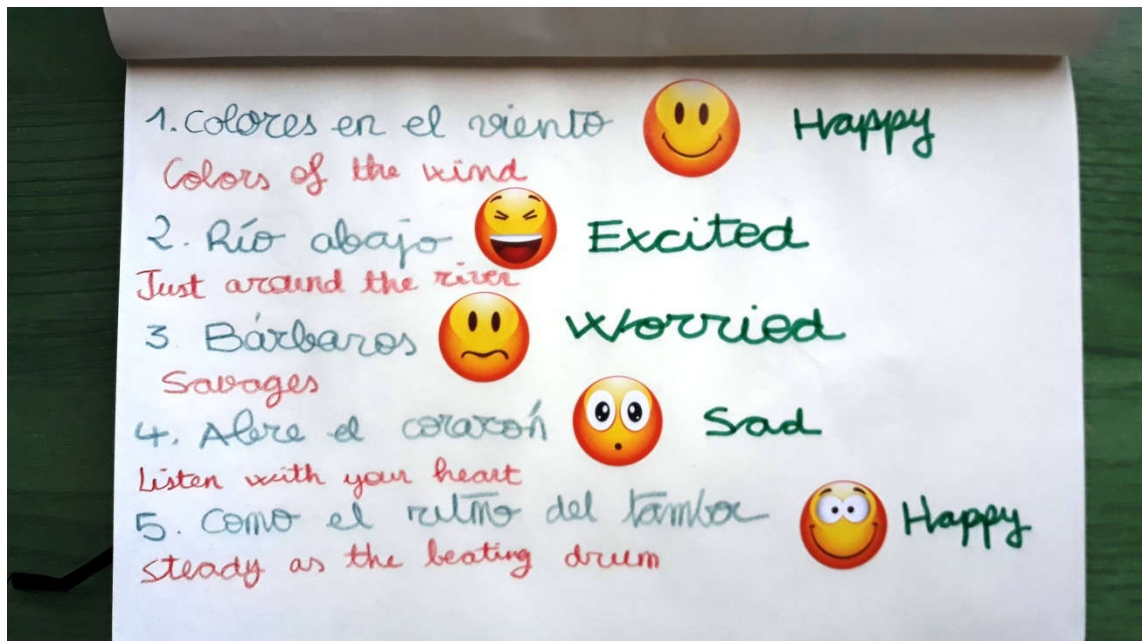 1. Colores en el viento Happy
Colors of the wind
2. Río abajo Excited
Just around the river
3. Bárbaros Worried
Savages
4. Abre el corazón Sad
Listen with your heart
5. Como el ritmo del tambor Happy
steady as the beating drum